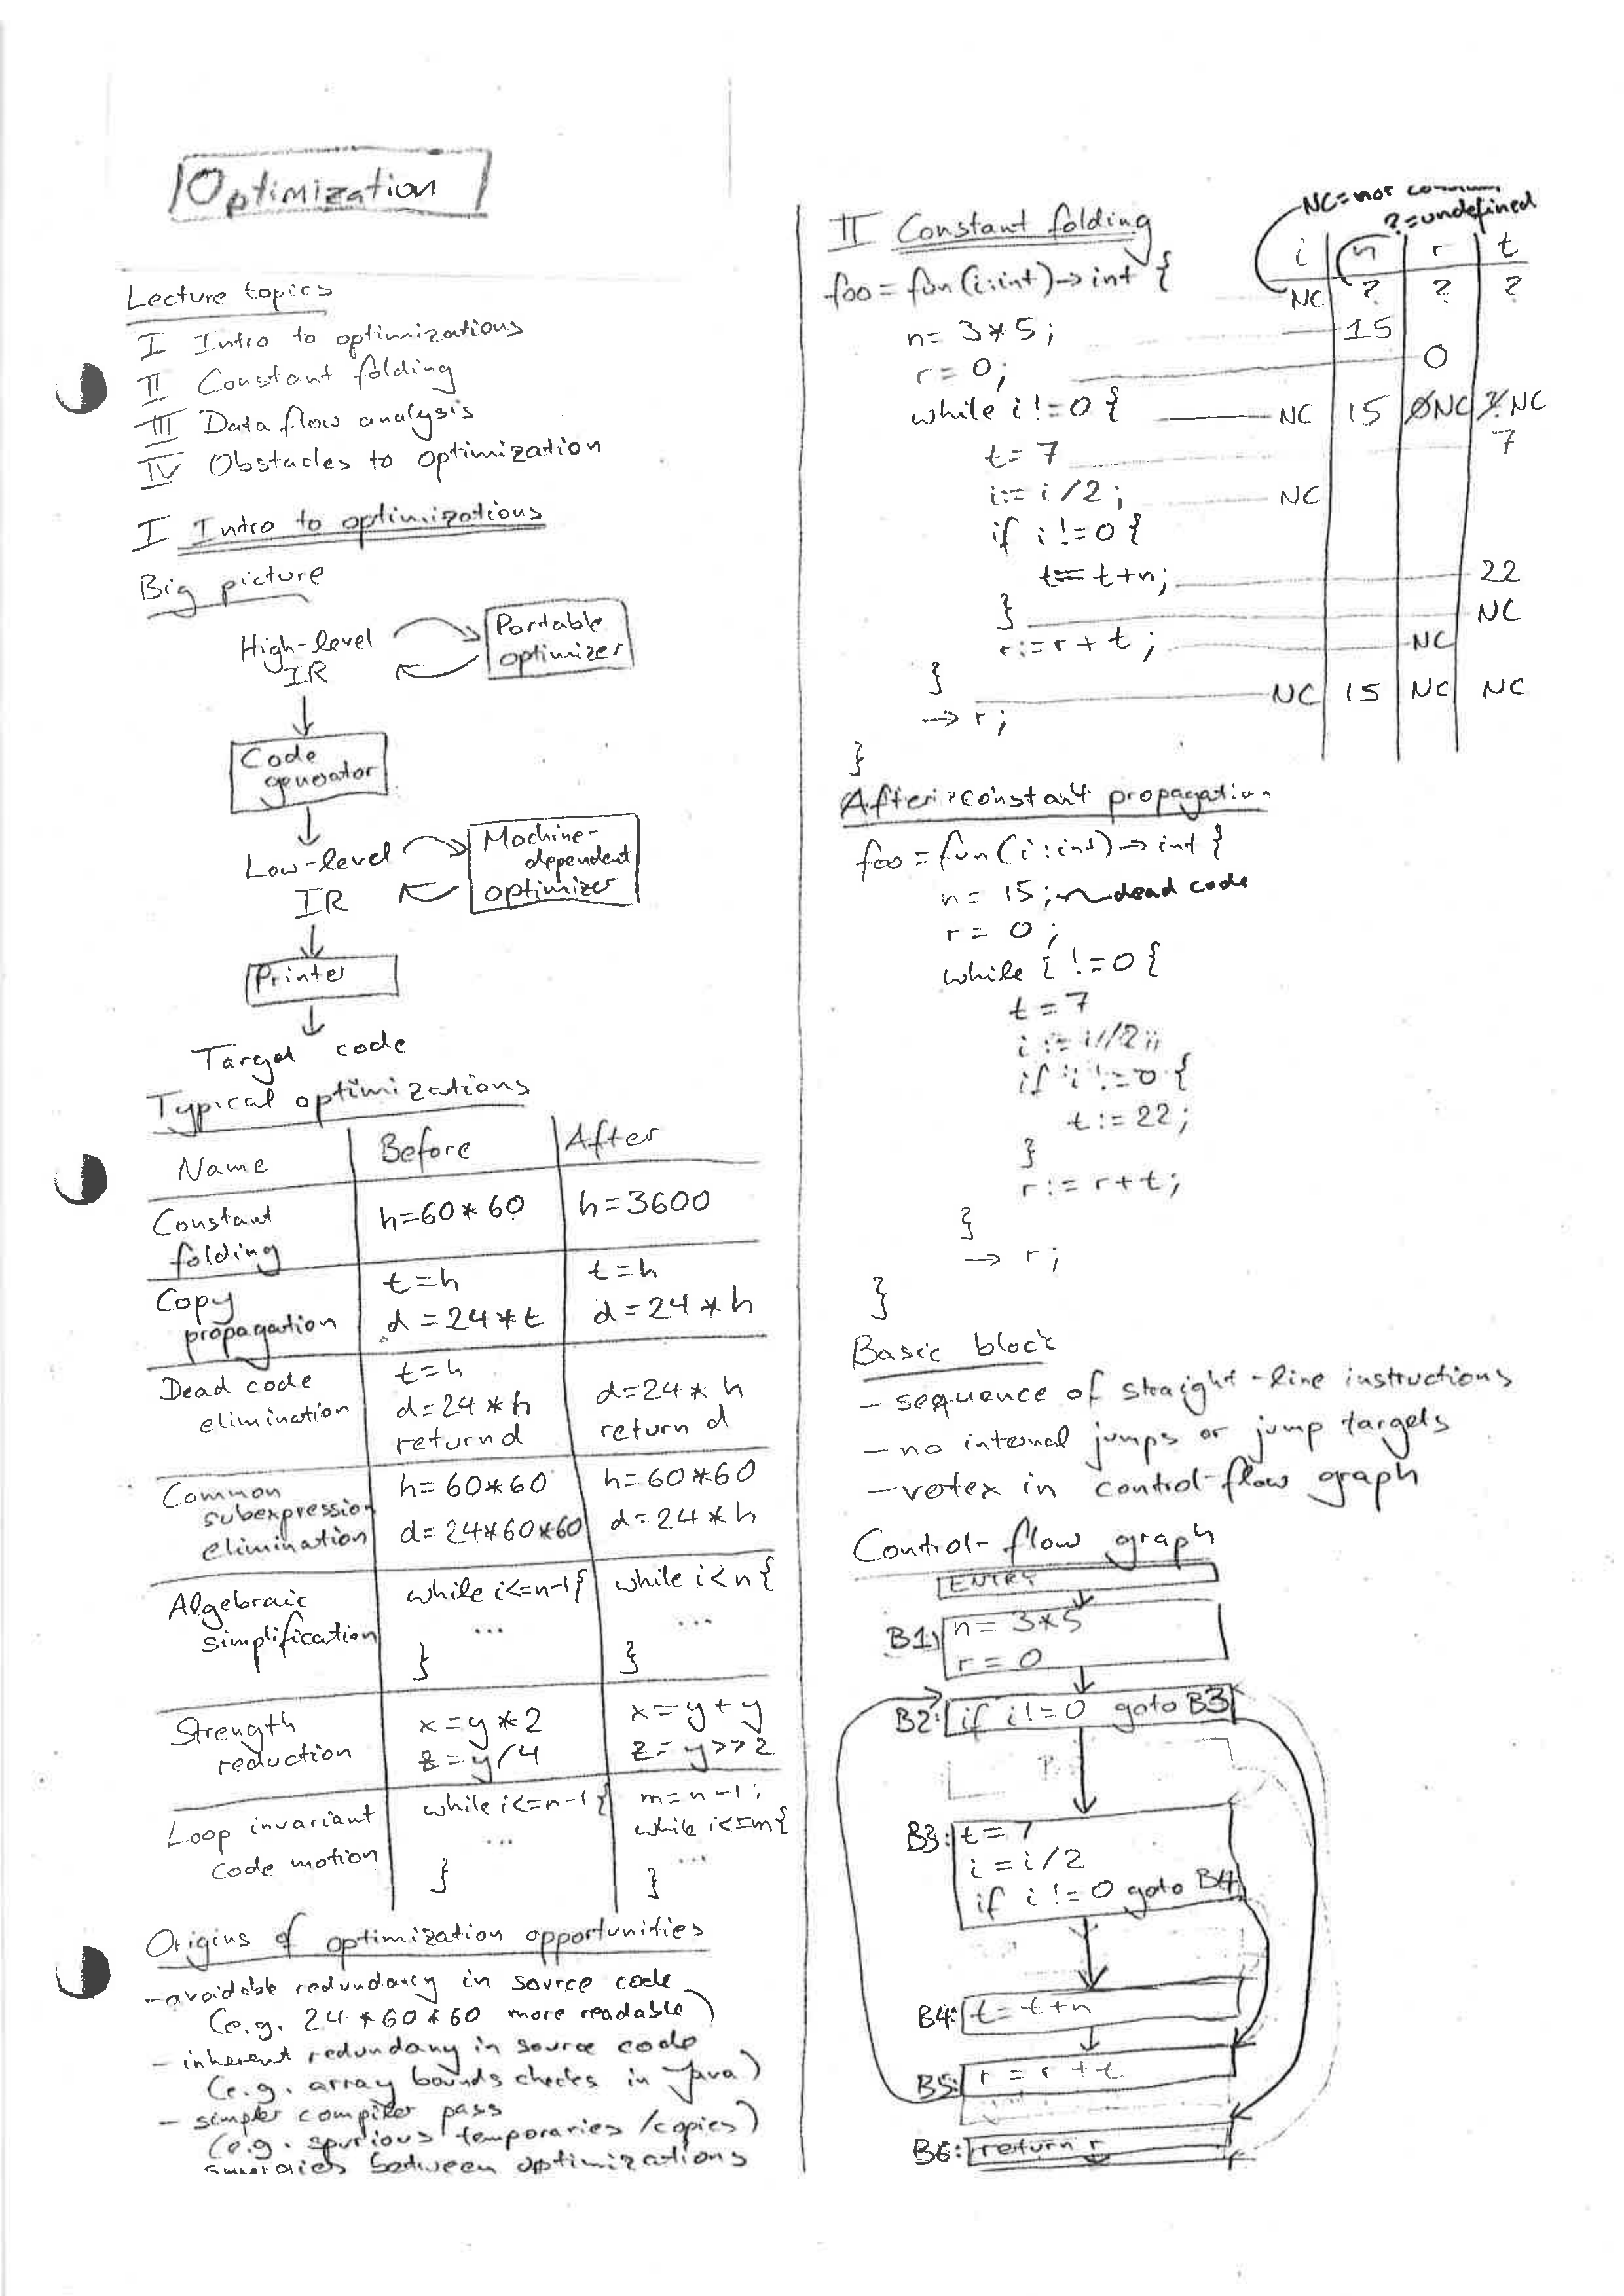 Optimization
Lecture topics
I Intro to optimizations
II Constant folding
III Data flow analysis
IV Obstacles to optimization
I Intro to optimizations
Big picture
High-level
IR
Portable
optimizer
Code
generator
Low-level
IR
Machine-
dependent
optimizer
Printer
Target code
Typical optimizations
Name Before After
Constant
folding
h=60*60
h=3600
Copy
propagation
t=h
d=24*t
t=h
d=24*h
Dead code
elimination
t=h
d=24*h
return d
d=24*h
return d
Common
subexpression
elimination
h=60*60
d=24*60*60
h=60*60
d=24*h
Algebraic
simplification
while i<=n-1{
...
}
while i<n{
...
}
Strength
reduction
x=y*2
z=y/4
x=y+y
z=y>>2
Loop invariant
code motion
while i<=n-1{
...
}
m=n-1;
while i<=m{
...
}
Origins of optimization opportunities
-avoidable redundancy in source code
(e.g. 24*60*60 more readable)
- inherent redundany in source code
(e.g. array bounds checks in Java)
- simpler compiler pass
(e.g. spurious temporaries/copies)
between optimizations
NC=not
?=undefined
II Constant folding
i n r t
foo = fun(i:int)->int { NC ? ? ?
n= 3*5; 15
r=0; 0
while i!=0 { NC 15 0NC ?NC
t=7 7
i:=i/2; NC
if i!=0 {
t:=t+n; 22
} NC
r:=r+t; NC
} NC 15 NC NC
-> r;
}
After constant propagation
foo = fun(i:int)->int {
n= 15; dead code
r= 0;
while i!=0 {
t=7
i:=i/2;
if i!=0 {
t:=22;
}
r:=r+t;
}
-> r;
}
Basic block
- sequence of straight-line instructions
- no internal jumps or jump targets
- vertex in control-flow graph
Control-flow graph
ENTRY
B1: n = 3*5
r = 0
B2: if i!=0 goto B3
B3: t=7
i=i/2
if i!=0 goto B4
B4: t=t+n
B5: r=r+t
B6: return r